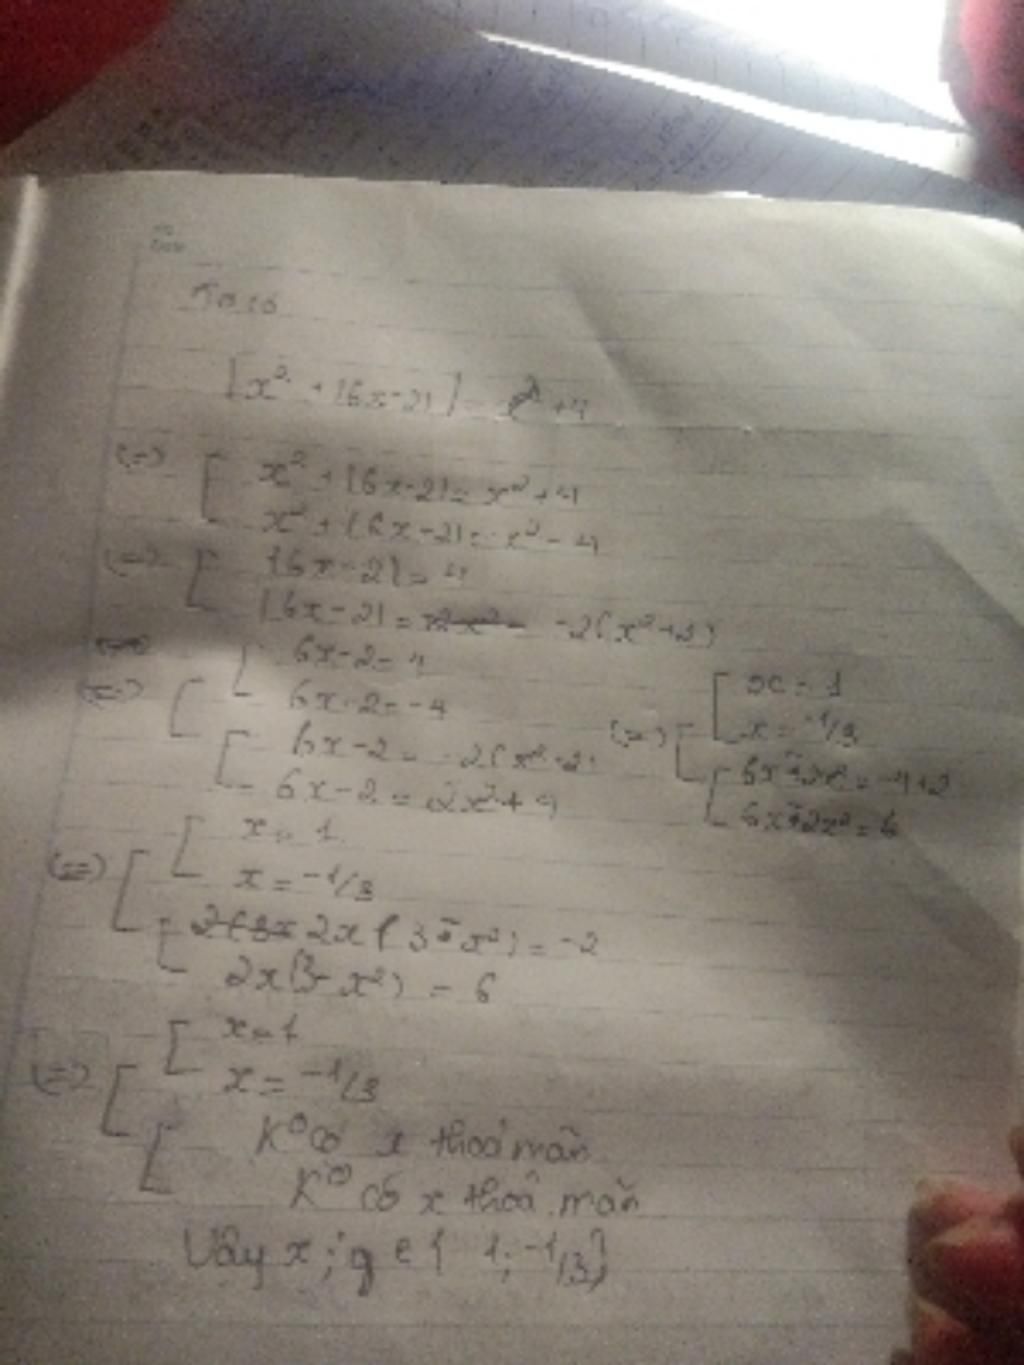 Ta có
|x² + |6x-2|| = x²+4
(=) [ x² + |6x-2| = x²+4
x² + |6x-2| = -x²-4
(=) [ |6x-2| = 4
|6x-2| = -2(x²+2)
(=) [ [ 6x-2 = 4
6x-2 = -4
[ 6x-2 = -2(x²+2)
6x-2 = 2x²+4
(=) [ [ x = 1
x = -1/3
[ 6x+2x² = -4+2
6x-2x² = 6
(=) [ [ x = 1
x = -1/3
[ 2x(3-x²) = -2
2x(3-x²) = 6
(=) [ [ x = 1
x = -1/3
[ K⁰ có x thoả mãn
K⁰ có x thoả mãn
Vậy x ; g ∈ { 1; -1/3}